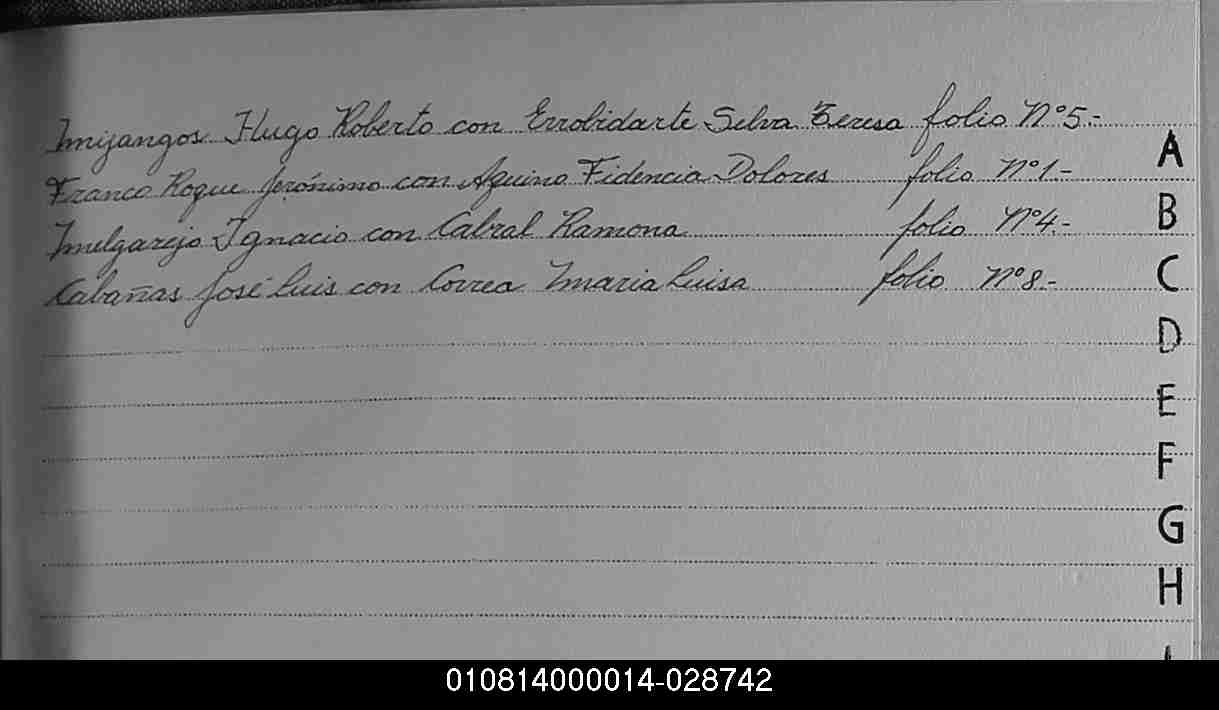 Mijangos Hugo Roberto con Errobidarte Silva Teresa folio Nº 5.-
Franco Roque Jerónimo con Aquino Fidencia Dolores folio Nº 1-
Melgarejo Ignacio con Cabral Ramona folio Nº 4.-
Cabañas José Luis con Correa Maria Luisa folio Nº 8.-
A
B
C
D
E
F
G
H
010814000014-028742